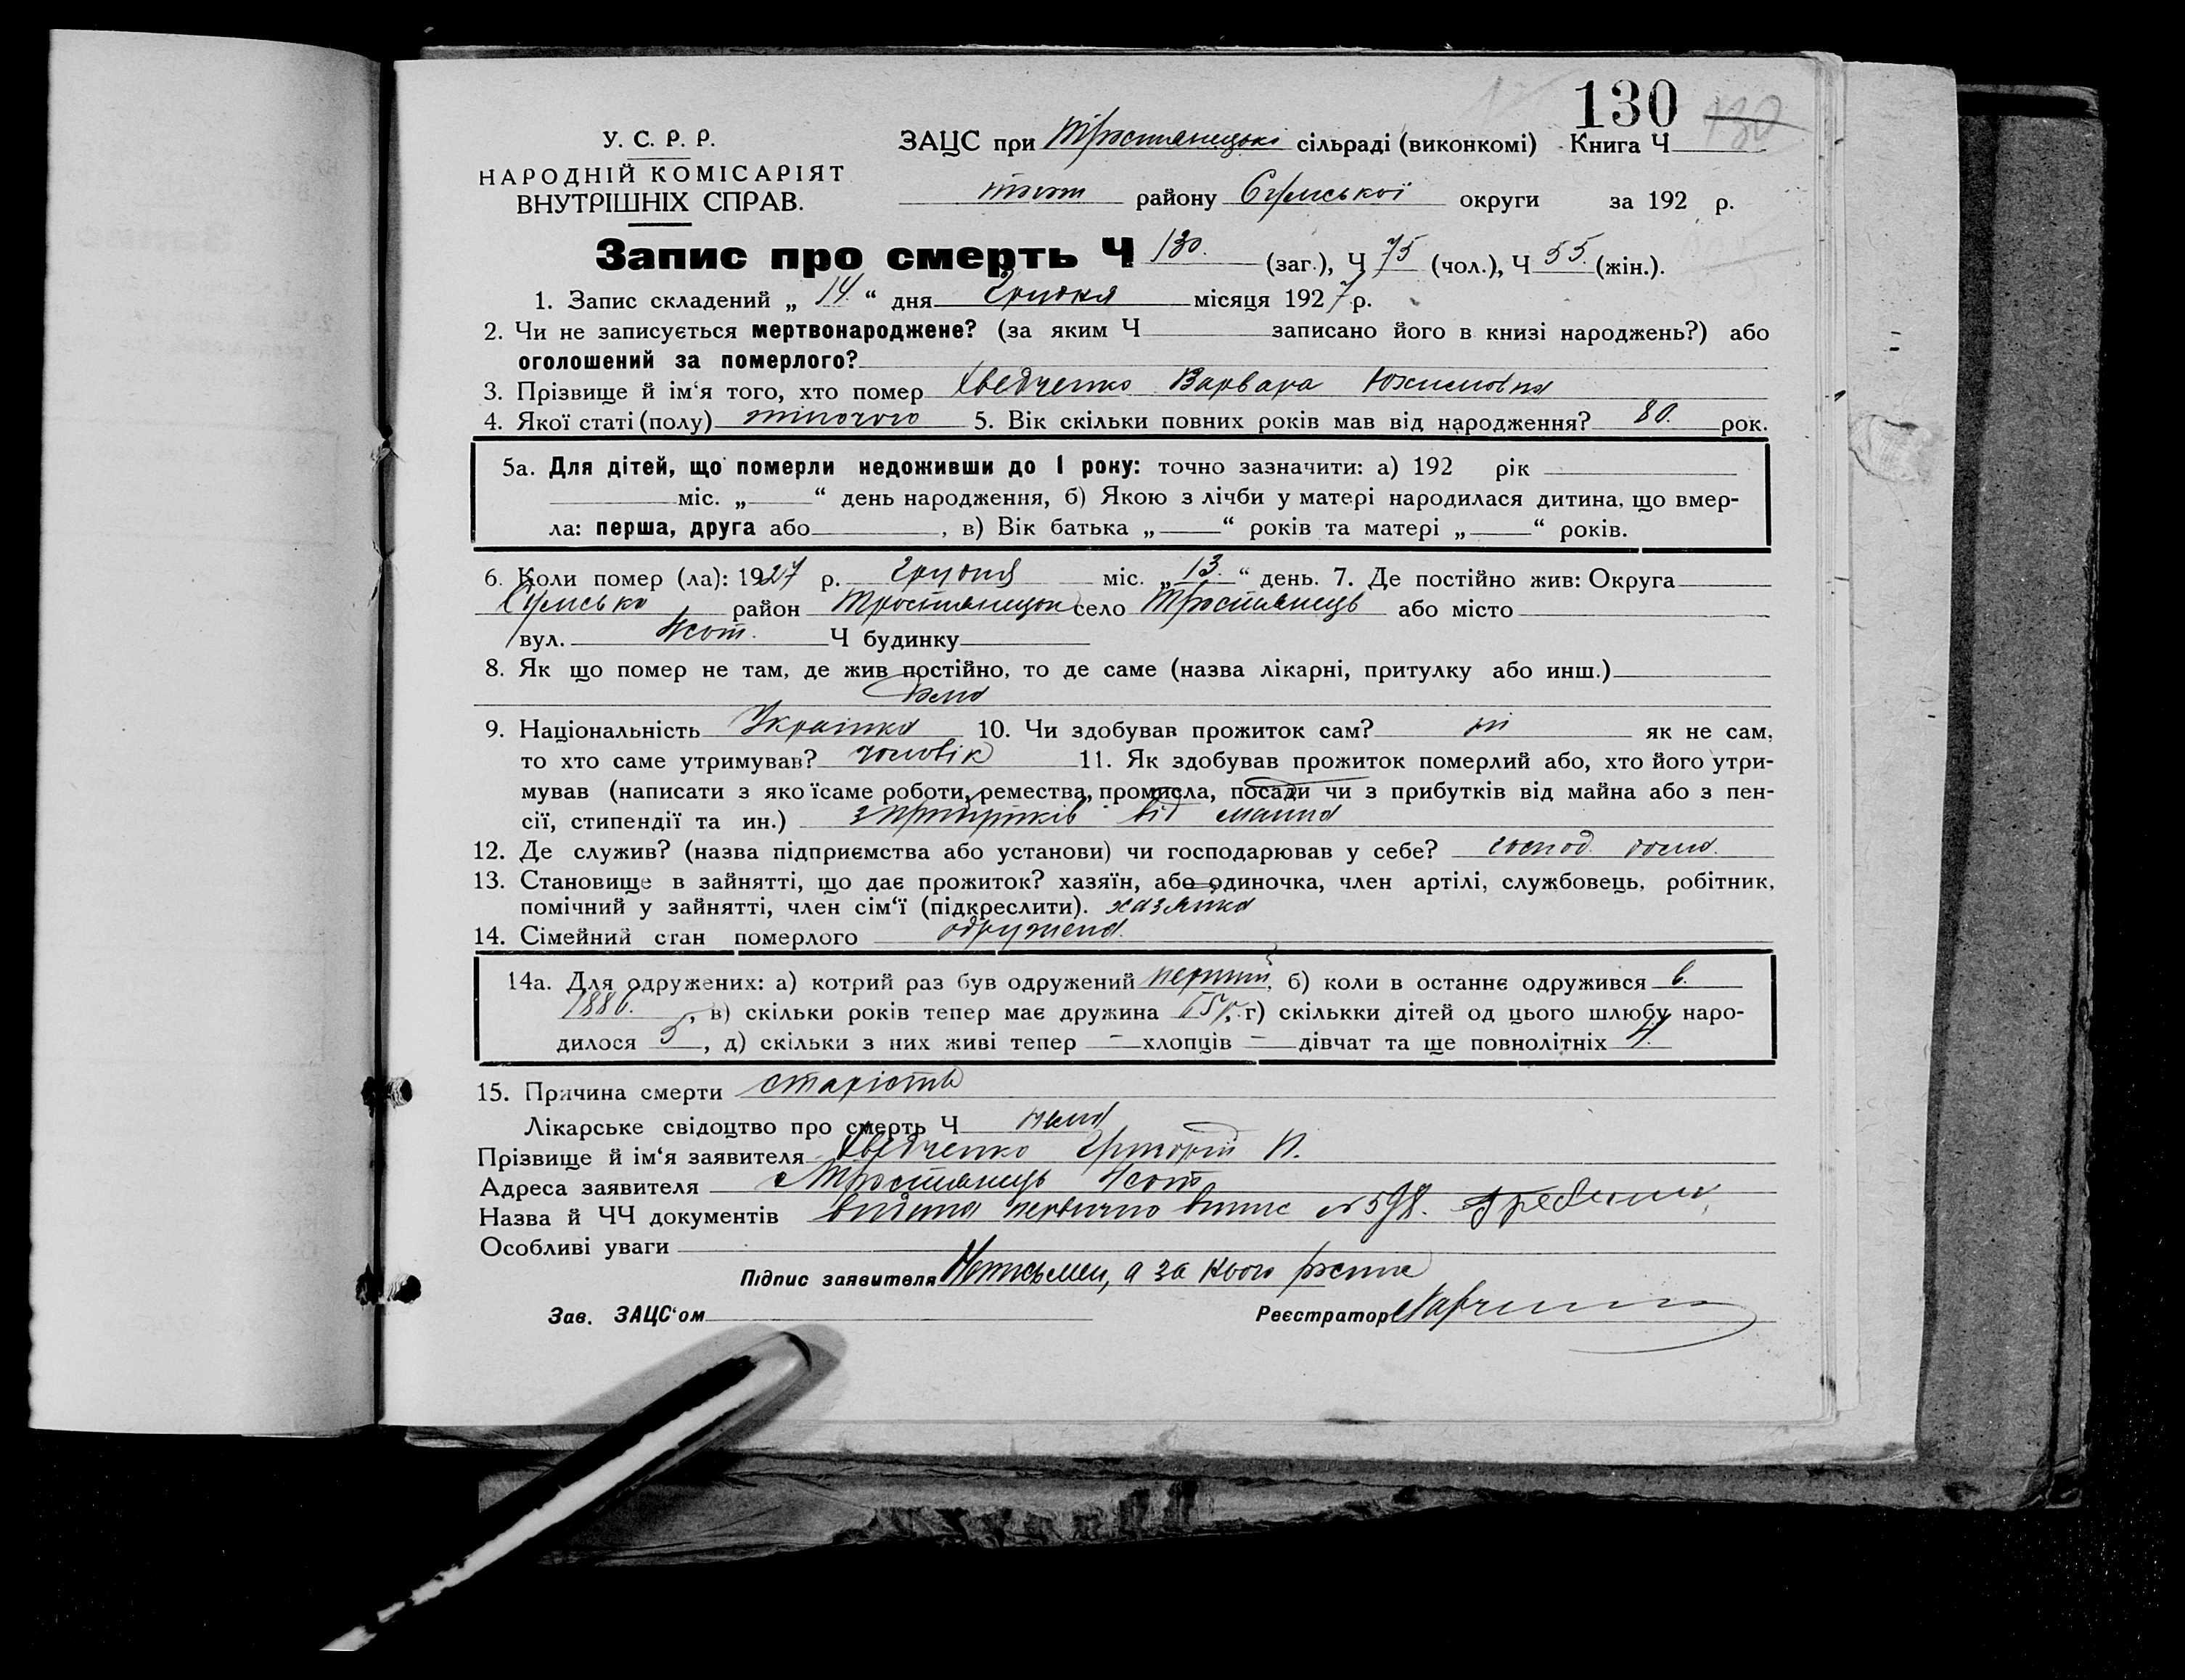 130 130
У. С. Р. Р.
ЗАЦС при Тростянецькі сільраді (виконкомі) Книга Ч
НАРОДНІЙ КОМІСАРІЯТ
ВНУТРІШНІХ СПРАВ.
району Сумської округи за 192 р.
Запис про смерть Ч 130. (заг.), Ч 75 (чол.), Ч 55. (жін.).
1. Запис складений „ 14 “ дня Грудня місяця 1927 р.
2. Чи не записується мертвонароджене? (за яким Ч записано його в книзі народжень?) або
оголошений за померлого?
3. Прізвище й ім‘я того, хто помер Хведченко Варвара
4. Якої статі (полу) жіночого 5. Вік скільки повних років мав від народження? 80. рок.
5а. Для дітей, що померли недоживши до 1 року: точно зазначити: а) 192 рік
міс. „ “ день народження, б) Якою з лічби у матері народилася дитина, що вмер-
ла: перша, друга або , в) Вік батька „ “ років та матері „ “ років.
6. Коли помер (ла): 1927 р. Грудня міс. „ 13. “ день. 7. Де постійно жив: Округа
Сумсько район Тростянецьк село Тростянець або місто
вул. 4 сот. Ч будинку
8. Як що помер не там, де жив постійно, то де саме (назва лікарні, притулку або инш.)
дома
9. Національність Українка 10. Чи здобував прожиток сам? ні як не сам,
то хто саме утримував? чоловік 11. Як здобував прожиток померлий або, хто його утри-
мував (написати з якоїсаме роботи, ремества, промисла, посади чи з прибутків від майна або з пен-
сії, стипендії та ин.) з прибутків від майна
12. Де служив? (назва підприємства або установи) чи господарював у себе? господ. дома.
13. Становище в зайнятті, що дає прожиток? хазяїн, або одиночка, член артілі, службовець, робітник,
помічний у зайнятті, член сім‘ї (підкреслити). хазяйка
14. Сімейний стан померлого одружена.
14а. Для одружених: а) котрий раз був одружений перший, б) коли в останнє одружився в
1886. , в) скільки років тепер має дружина , г) скількки дітей од цього шлюбу наро-
дилося 5 , д) скільки з них живі тепер – хлопців – дівчат та ще повнолітніх 4.
15. Причина смерти старість
Лікарське свідоцтво про смерть Ч нема
Прізвище й ім‘я заявителя Хведченко Григорій П.
Адреса заявителя Тростянець 4 сот
Назва й ЧЧ документів видана первично випис № 598.
Особливі уваги
Підпис заявителя Неписьмен, а за нього роспис
Зав. ЗАЦС‘ом Реєстратор